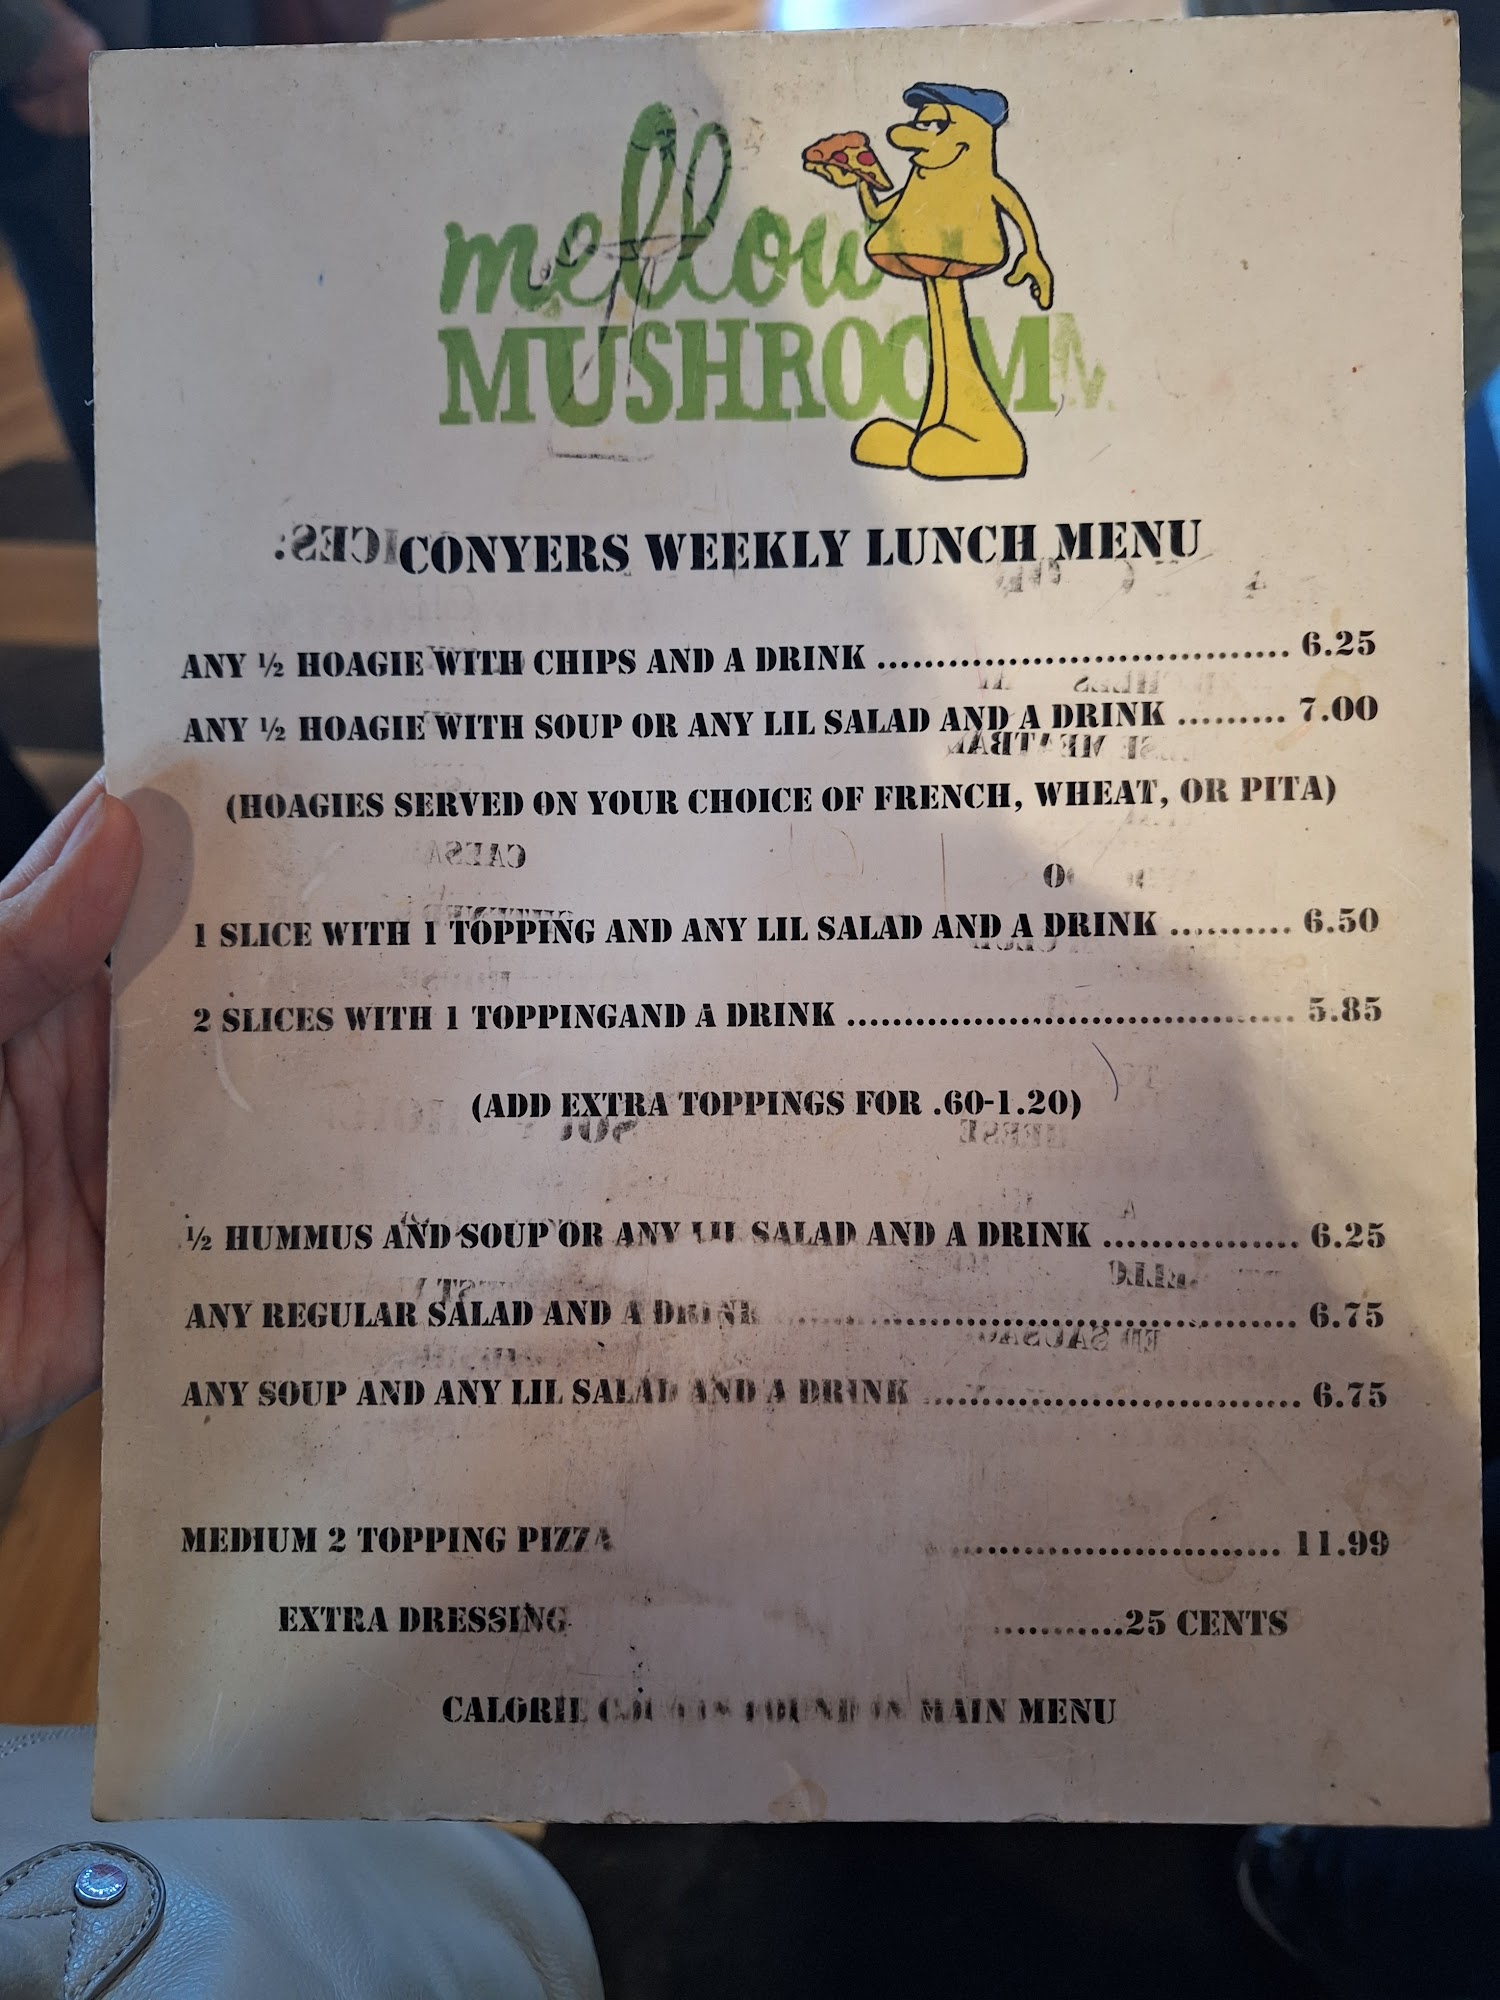 mellow
MUSHROOM
CONYERS WEEKLY LUNCH MENU
ANY ½ HOAGIE WITH CHIPS AND A DRINK .................................. 6.25
ANY ½ HOAGIE WITH SOUP OR ANY LIL SALAD AND A DRINK ......... 7.00
(HOAGIES SERVED ON YOUR CHOICE OF FRENCH, WHEAT, OR PITA)
1 SLICE WITH 1 TOPPING AND ANY LIL SALAD AND A DRINK .......... 6.50
2 SLICES WITH 1 TOPPINGAND A DRINK ....................................... 5.85
(ADD EXTRA TOPPINGS FOR .60-1.20)
½ HUMMUS AND SOUP OR ANY LIL SALAD AND A DRINK ................ 6.25
ANY REGULAR SALAD AND A DRINK ........................................ 6.75
ANY SOUP AND ANY LIL SALAD AND A DRINK ................................ 6.75
MEDIUM 2 TOPPING PIZZA ............................ 11.99
EXTRA DRESSING ...........25 CENTS
CALORIE COUNTS FOUND IN MAIN MENU